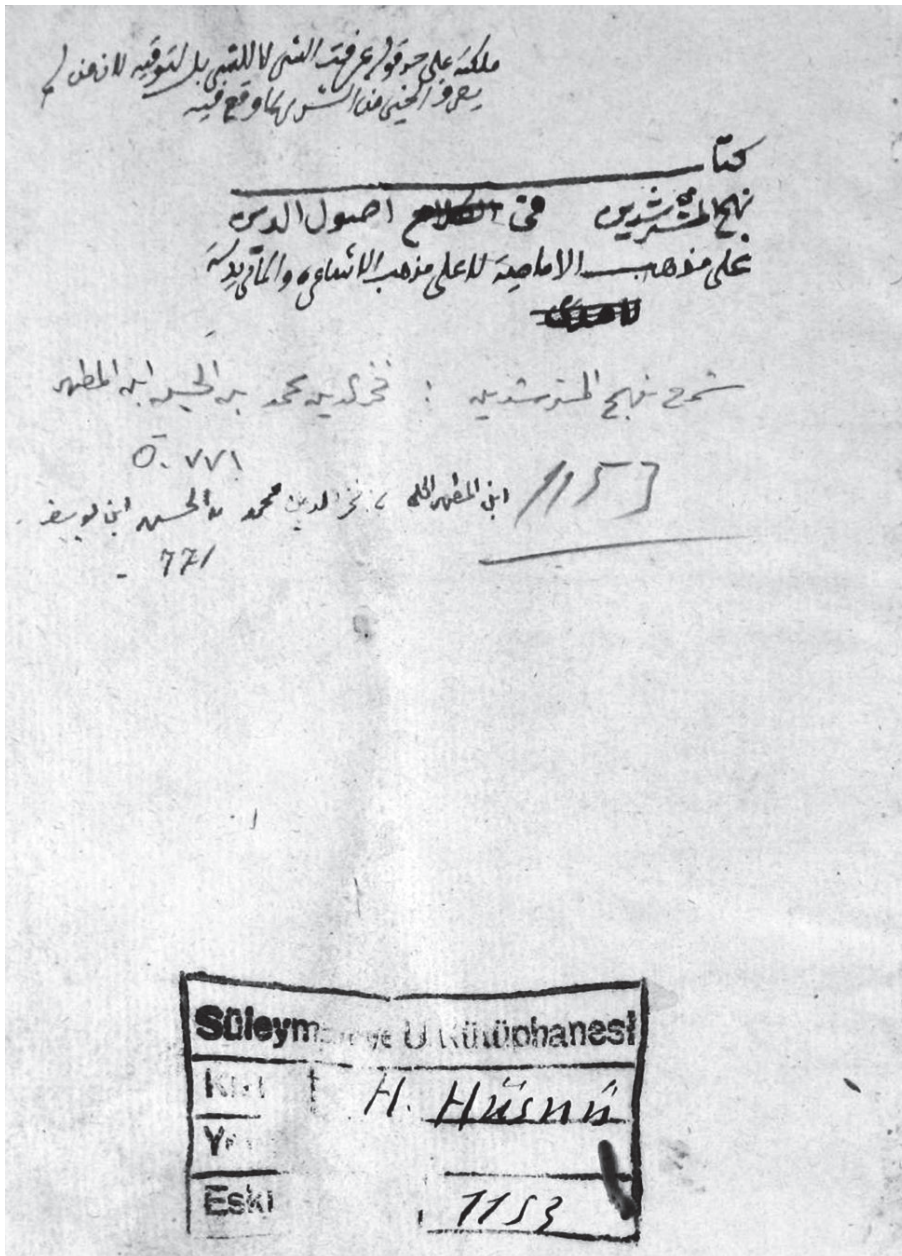 ملكته على حد قولهم عرفت الشر لا للشر بل لتوقيه لان من لم
يعرف الخير من الشر يوما وقع فيه
كتاب
نهج المسترشدين في الكلام اصول الدين
على مذهب الامامية لا على مذهب الاشاعره والماتريديه
شرح نهج المسترشدين : فخر الدين محمد بن الحسن ابن المطهر
٧٧١
1153
ابن المطهر الحلي ، فخر الدين محمد بن الحسن ابن يوسف
- 771
Süleymaniye U Kütüphanesi
H. Hüsnü
Y
Eski
1153